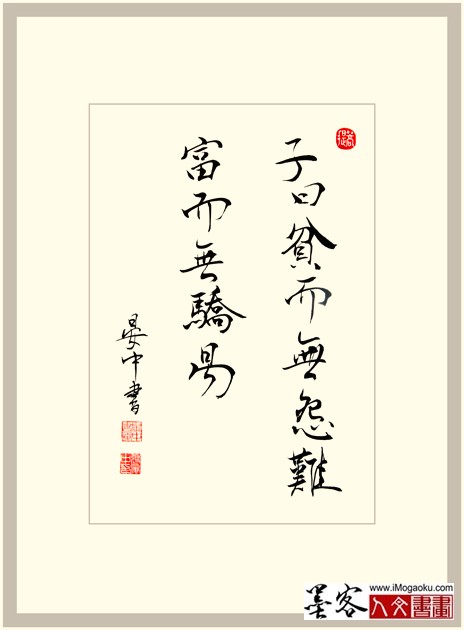 子曰貧而無怨難
富而無驕易
晏中書
墨客
www.iMogaoku.com
人文書畫